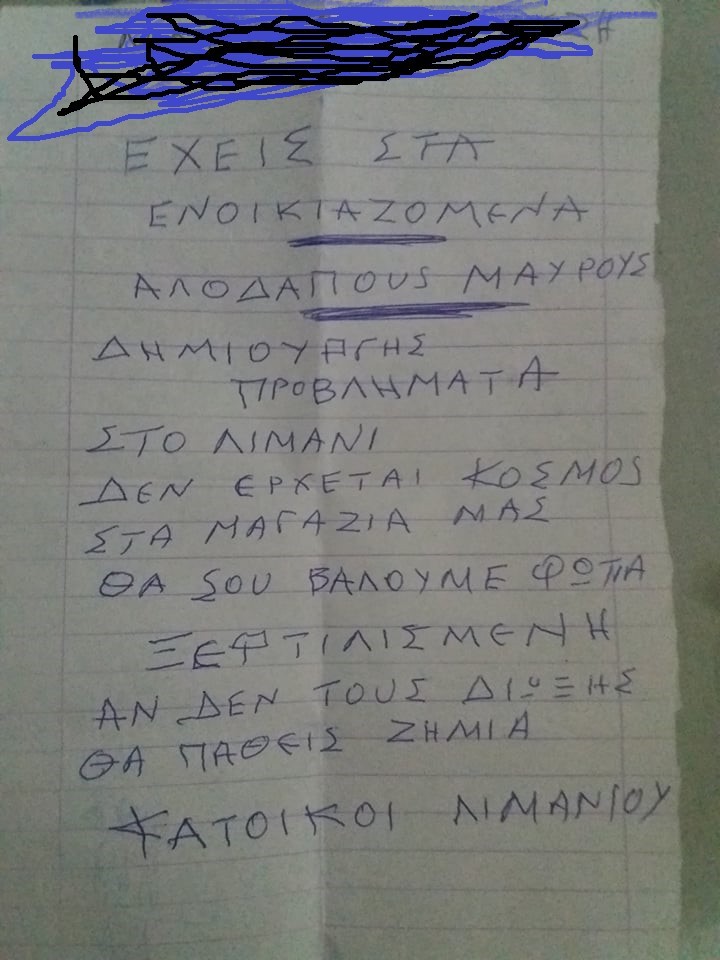 ΕΧΕΙΣ ΣΤΑ
ΕΝΟΙΚΙΑΖΟΜΕΝΑ
ΑΛΟΔΑΠΟUS ΜΑΥΡΟΥΣ
ΔΗΜΙΟΥΡΓΗΣ
ΠΡΟΒΛΗΜΑΤΑ
ΣΤΟ ΛΙΜΑΝΙ
ΔΕΝ ΕΡΧΕΤΑΙ ΚΟΣΜΟS
ΣΤΑ ΜΑΓΑΖΙΑ ΜΑΣ
ΘΑ SΟU ΒΑΛΟΥΜΕ ΦΩΠΑ
ΞΕΦΤΙΛΙΣΜΕΝΗ
ΑΝ ΔΕΝ ΤΟΥΣ ΔΙΩΞΗΣ
ΘΑ ΠΑΘΕΙΣ ΖΗΜΙΑ
ΚΑΤΟΙΚΟΙ ΛΙΜΑΝΙΟΥ